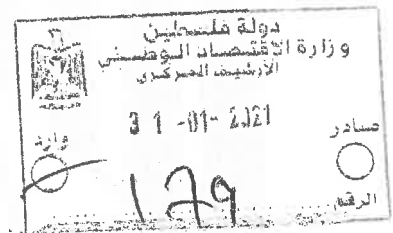 دولة فلسطين
وزارة الاقتصاد الوطني
الأرشيف المركزي
31 -01- 2021
صادر
وارد
179
الرقم